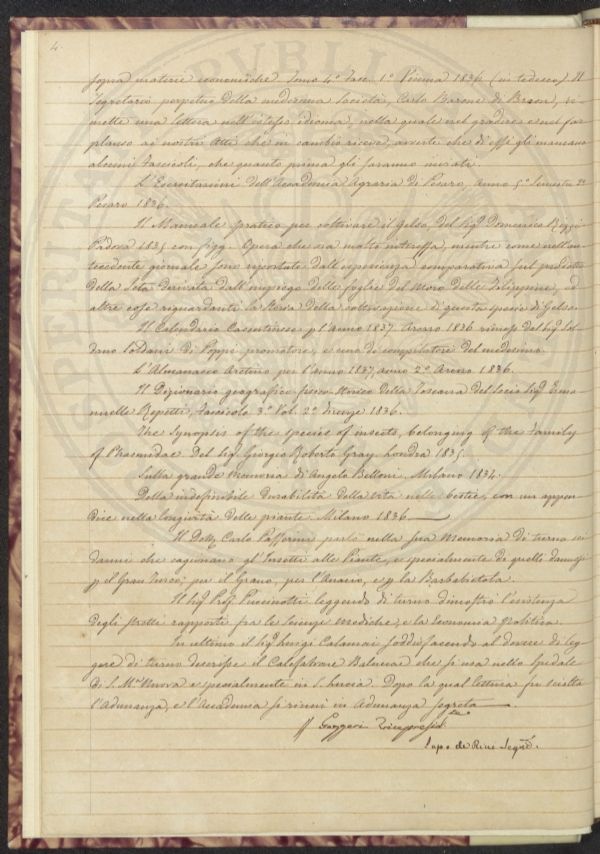 4.
sopra materie economiche Tomo 4° Fasc. 1° Vienna 1836 (in tedesco). Il
Segretario perpetuo della medesima Società, Carlo Barone di ri=
mette una lettera nell'istesso idioma, nella quale nel gradire e nel far
plauso ai nostri Atti che in cambio riceve, avverte che di essi gli mancano
alcuni Fascicoli, che quanto prima gli saranno inviati.
L'Esercitazioni dell'Accademia Agraria di Pesaro, anno 5° Semestre 2°
Pesaro 1836.
Il Manuale pratico per coltivare il Gelso, del Sig. Domenico Rizzi
Padova 1835 con figg. Opera che era molto interessa, mentre come nell'an
tecedente giornale sono riportate dall'esperienza comparativa sul prodotto
della Seta derivata dall'impiego delle foglie del Moro delle Filippine, ed
altre cose riguardanti la storia della coltivazione di questa specie di Gelso.
Il Calendario Casentinese p l'anno 1837. Arezzo 1836 rimesso dal Sig. Sol
dano Soldani di Poppi promotore, e uno de' compilatori del medesimo.
L'Almanacco Aretino per l'anno 1837, anno 2° Arezzo 1836.
Il Dizionario geografico fisico storico della Toscana del socio Sig. Ema
nuelle Repetti, Fascicolo 3° Vol. 2° Firenze 1836.
The Synopsis of the species of insects, belonging of the Family
of Phasmidae del Sig. Giorgio Roberto Gray. Londra 1835.
Sulla grande Memoria di Angelo Belloni, Milano 1834.
Della indefinibile durabilità della vita nelle bestie, con un appen
dice nella longevità delle piante. Milano 1836
Il Dott. Carlo Passerini parlò nella sua Memoria di turno sui
danni che cagionano gl'Insetti alle Piante, e specialmente di quelli dannosi
p il Gran Turco; per il Grano, per l'Anacio, e p la Barbabietola.
Il Sig. Prof. Puccinotti leggendo di turno dimostrò l'esistenza
degli stretti rapporti fra le Scienze Mediche, e la Economia Politica.
In ultimo il Sig. Luigi Calamai soddisfacendo al dovere di leg
gere di turno descrisse il Balneare che si usa nello spedale
di S. Ma Nuova e specialmente in S. Lucia. Dopo la qual lettura fu sciolta
l'Adunanza, e l'Accademia si riunì in Adunanza segreta
Gazzeri Vicepresid.te
Lapo de Ricci Segrio.